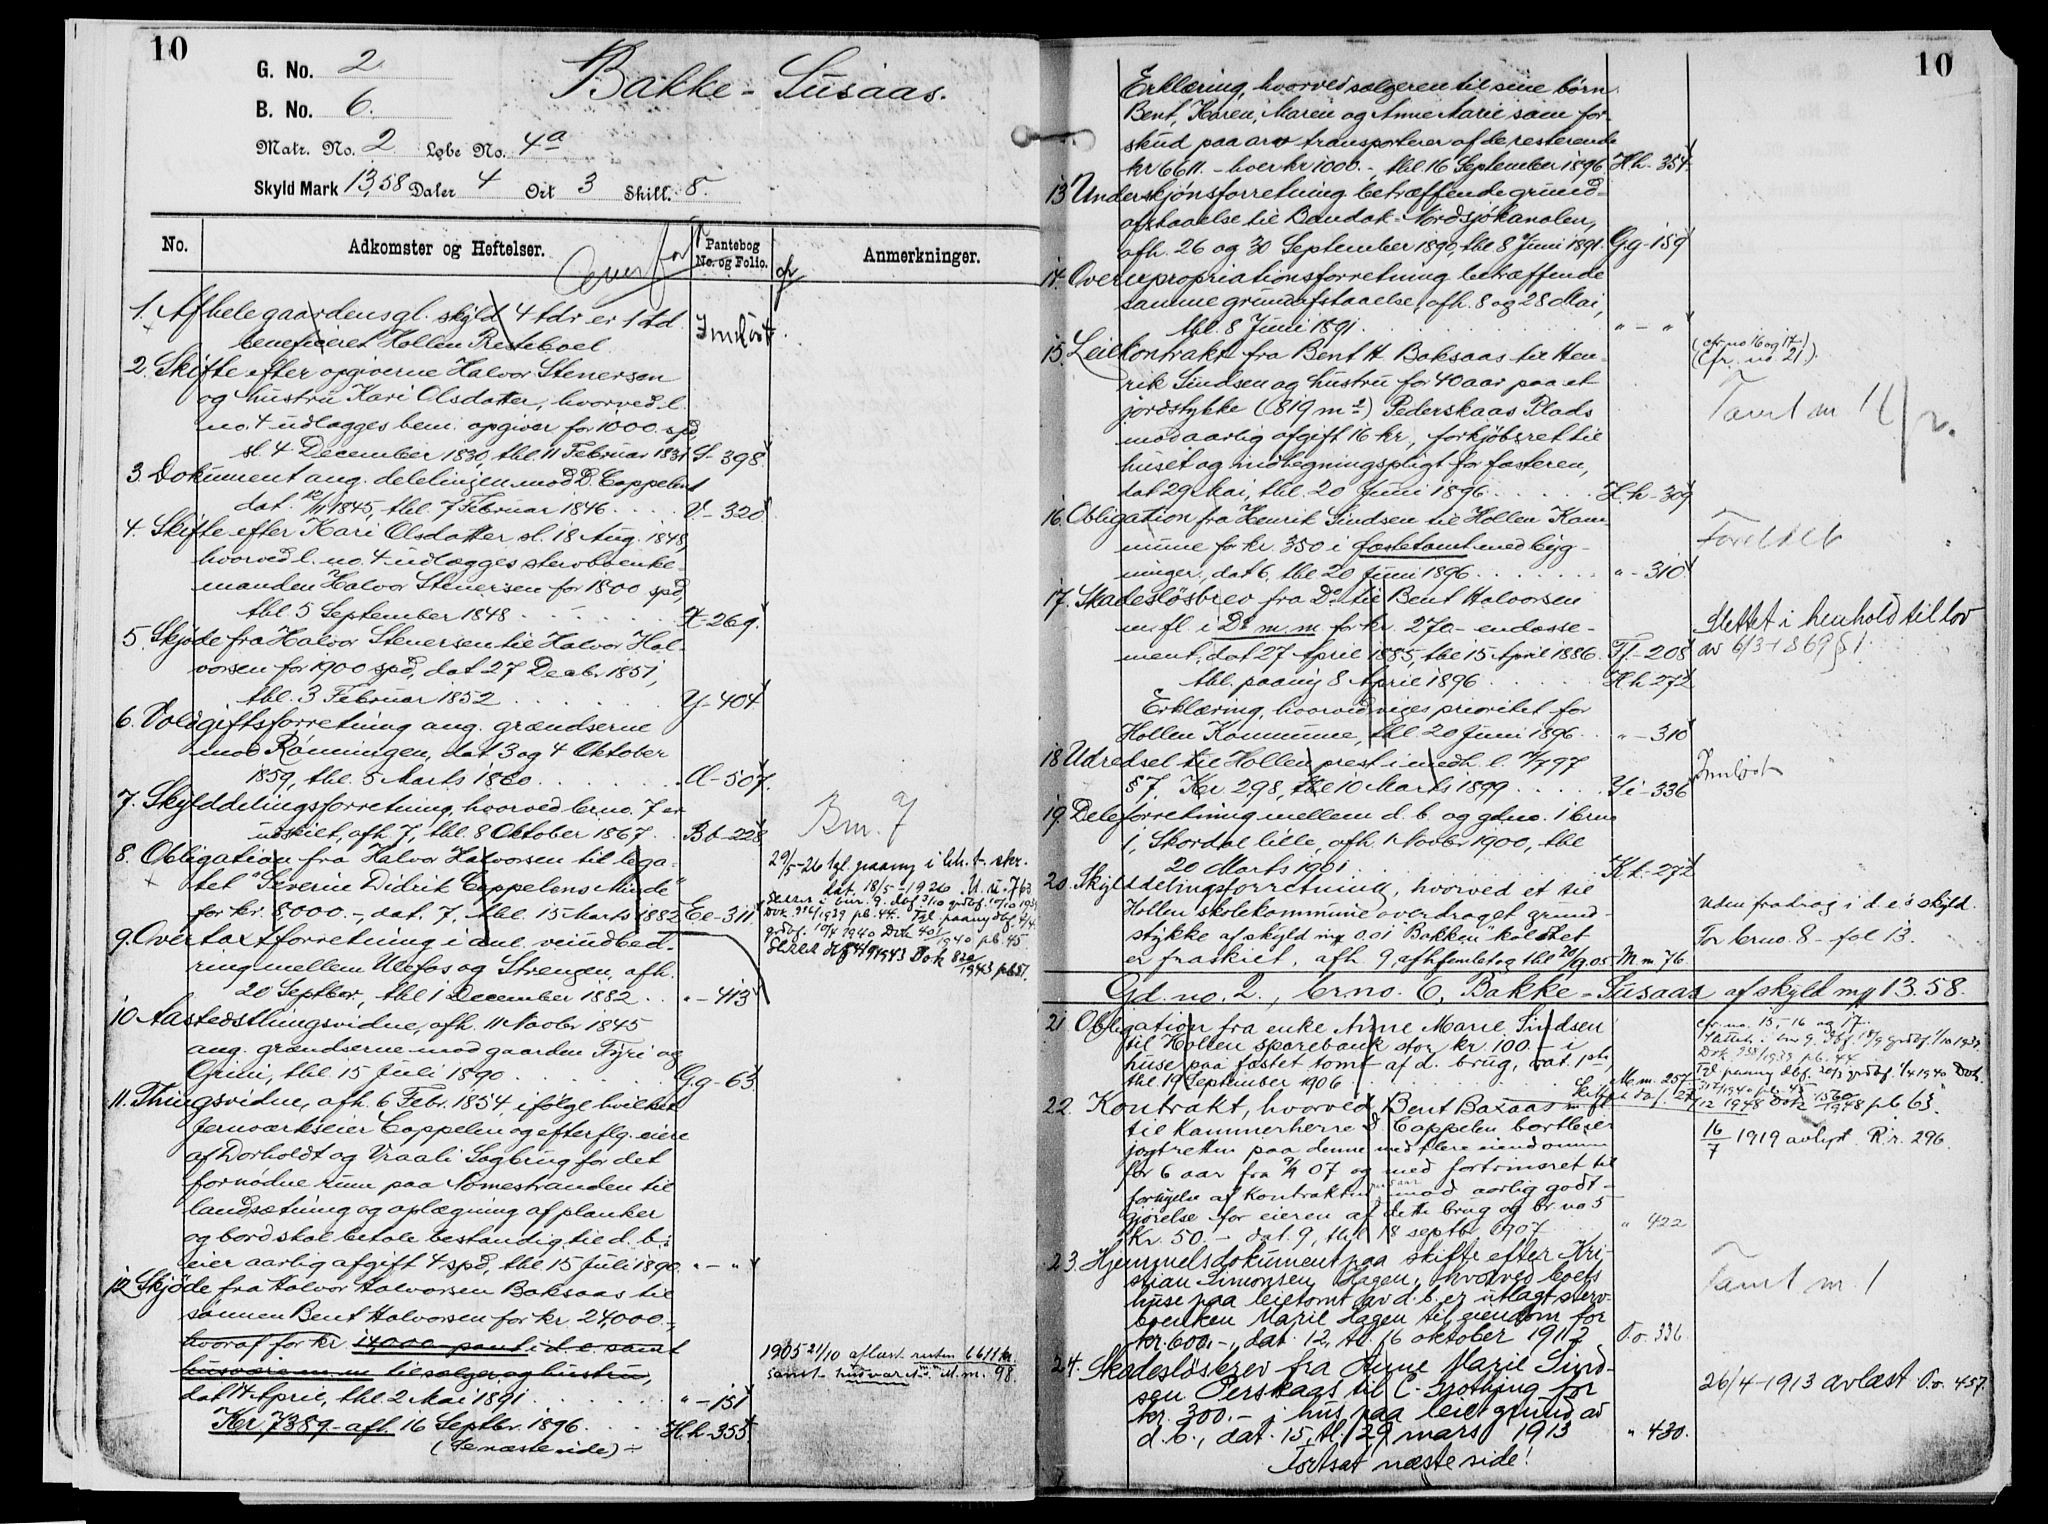 10
G. No. 2
B. No. 6.
Bakke - Susaas.
Matr. No. 2 Løbe No. 4a
Skyld Mark 13,58 Daler 4 Ort 3 Skill. 8.
No. Adkomster og Heftelser. Pantebog No. og Folio. Anmerkninger.
Overført cfr
1. Af hele gaardens gl. skyld 4 tdr er 1 td. Innløst.
beneficeret Hollen Presteboel
2. Skifte efter opgiverne Halvor Stenersen
og hustru Kari Olsdatter, hvorved l.
no. 4 udlægges bem. opgiver for 1000 spd,
sl. 4 December 1830, tbl. 11 Februar 1831 S-398
3. Dokument ang. delelingen mod D. Cappelen
dat. 12/11 1845, tbl. 7 Februar 1846 V-320
4. Skifte efter Kari Olsdatter sl. 18 Aug. 1848,
hvorved l. no. 4 udlægges stervboenke-
manden Halvor Stenersen for 1800 spd,
tbl. 5 September 1848 X-269.
5. Skjøde fra Halvor Stenersen til Halvor Hal-
vorsen for 1900 spd, dat. 27 Decbr. 1851,
tbl. 3 Februar 1852 Y-404
6. Voldgiftsforretning ang. grændserne
mod Rønningen, dat. 3 og 4 Oktober
1859, tbl. 5 Marts 1860 A-507.
7. Skylddelingsforretning, hvorved br.no. 7 er Bno. 7
udskilt, afh. 7, tbl. 8 Oktober 1867 Bb-228
8. Obligation fra Halvor Halvorsen til lega-
tet "Severin Didrik Cappelens Minde"
for kr. 8000.-, dat. 7, tbl. 15 Marts 1882 Ee-311
29/5-26 tgl. paany i hh. t. skr.
dat. 18/5-1926. U. u. 763
9. Overtaxtforretning i anl. veiudbed-
ring mellem Ulefos og Strengen, afh.
20 Septbr., tbl. 1 December 1882 "-413
10 Aastedsthingsvidne, afh. 11 Novbr. 1845
ang. grændserne mod gaarden Fyri og
Grini, tbl. 15 Juli 1890 Gg-63
11. Thingsvidne, afh. 6 Febr. 1854, ifølge hvilket
Jernværkseier Cappelen og efterflg. eiere
af Dorholdt og Vraali Sagbrug for det
fornødne rum paa Nomestranden til
landsætning og oplægning af planker
og bord skal betale bestandig til d. b.s
eier aarlig afgift 4 spd, tbl. 15 Juli 1890 "-"
12 Skjøde fra Halvor Halvorsen Baksaas til
sønnen Bent Halvorsen for kr. 24,000.-,
hvoraf for kr. 14000 pant i d. e. samt
husvære m m til sælger og hustru,
dat. 14 April, tbl. 2 Mai 1891 "-151
1905 21/10 aflæst resten 6611 kr.
samt husvære m.m. M. m. 98.
Kr. 7389 - afl. 16 Septbr. 1896 H.h-355
(Se næste side)
10
Erklæring, hvorved sælgeren til sine børn
Bent, Karen, Maren og Anne Marie som for-
skud paa arv transporterer af de resterende
kr 6611.- hver kr 1000.-, tbl. 16 September 1896 H.h-354
13 Underskjønsforretning betræffende grund-
afstaaelse til Bandak-Nordsjøkanalen,
afh. 26 og 30 September 1890, tbl. 8 Juni 1891 G.g-159
14. Overexpropriationsforretning betræffende
samme grundafstaaelse, afh. 8 og 28 Mai,
tbl. 8 Juni 1891 "-"
15. Leiekontrakt fra Bent H. Baksaas til Hen- (cfr no 16 og 17.)
rik Sindsen og hustru for 40 aar paa et (Cfr. no. 21).
jordstykke (819 m2) Pederskaas Plads
mod aarlig afgift 16 kr., forkjøbsret til
huset og indhegningspligt for fæsteren,
dat. 29 Mai, tbl. 20 Juni 1896 H.h-309
16. Obligation fra Henrik Sindsen til Hollen Kom-
mune for kr. 350 i fæstetomt med byg-
ninger, dat. 6, tbl. 20 Juni 1896 "-310
17. Skadesløsbrev fra Do til Bent Halvorsen
m.fl. i Do m.m. for kr. 270 - endosse- Slettet i henhold til lov
ment, dat. 27 April 1885, tbl. 15 April 1886 Ff-208 av 6/3-1869 § 1
tbl. paany 8 April 1896 H.h-272
Erklæring, hvorved viges prioritet for
Hollen Kommune, tbl. 20 Juni 1896 "-310
18 Udredsel til Hollen prest i medh. l. § 7. Kr. 298, tbl. 10 Marts 1899 Ii-336 Innløst
19. Deleforretning mellem d. b. og gdno. 1 brno
1, Skordal lille, afh. 1 Novbr 1900, tbl
20 Marts 1901 K.k-272
20. Skylddelingsforretning, hvorved et til
Hollen skolekommune overdraget grund- uden fradrag i d. e's skyld.
stykke af skyld mk 0.01 "Bakken" kaldet For brno. 8 - fol 13.
er fraskilt, afh. 9, afhjemlet og tbl 20/9.05 M m 76
Gd. no. 2., brno. 6, Bakke - Susaas af skyld mk 13.58.
21 Obligation fra enke Anne Marie Sindsen cfr. no. 15, - 16 og 17.
til Hollen sparebank stor kr. 100.- i
huse paa fæstet tomt af d. brug, dat. 1ste,
tbl. 19 September 1906 M m. 257
22. Kontrakt, hvorved Bent Baxaas m fl
til kammerherre D. Cappelen bortleier 16/7 1919 avlyst. R.r. 296.
jagtretten paa denne med flere eiendomme
for 6 aar fra 9/9 07 og med fortrinsret til
fornyelse af kontrakten mod aarlig godt-
gjørelse for eieren af dette brug og br.no 5
kr. 50.- dat. 9, tbl. 18 septbr. 1907 " 422
23. Hjemmelsdokument paa skifte efter Kri-
stian Simonsen Hagen, hvorved boets Tomt nr 1
huse paa leietomt av d. b. er utlagt sterv-
boenken Marie Hagen til eiendom for
kr. 600.-, dat. 12, tl. 16 oktober 1912 O.o. 336
24. Skadesløsbrev fra Anne Marie Sind-
sen Perskaas til C. Grothjug for 26/4-1913 avlæst O.o. 457.
kr. 300.- i hus paa leiet grund av
d. b., dat. 15, tl. 29 mars 1913 " 430.
Fortsat næste side!